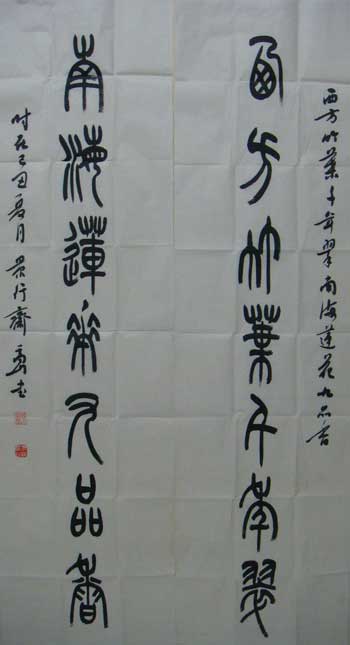 西方竹葉千年翠南海蓮花九品香
西方竹葉千年翠
南海蓮華九品香
时在己丑夏月景行齋